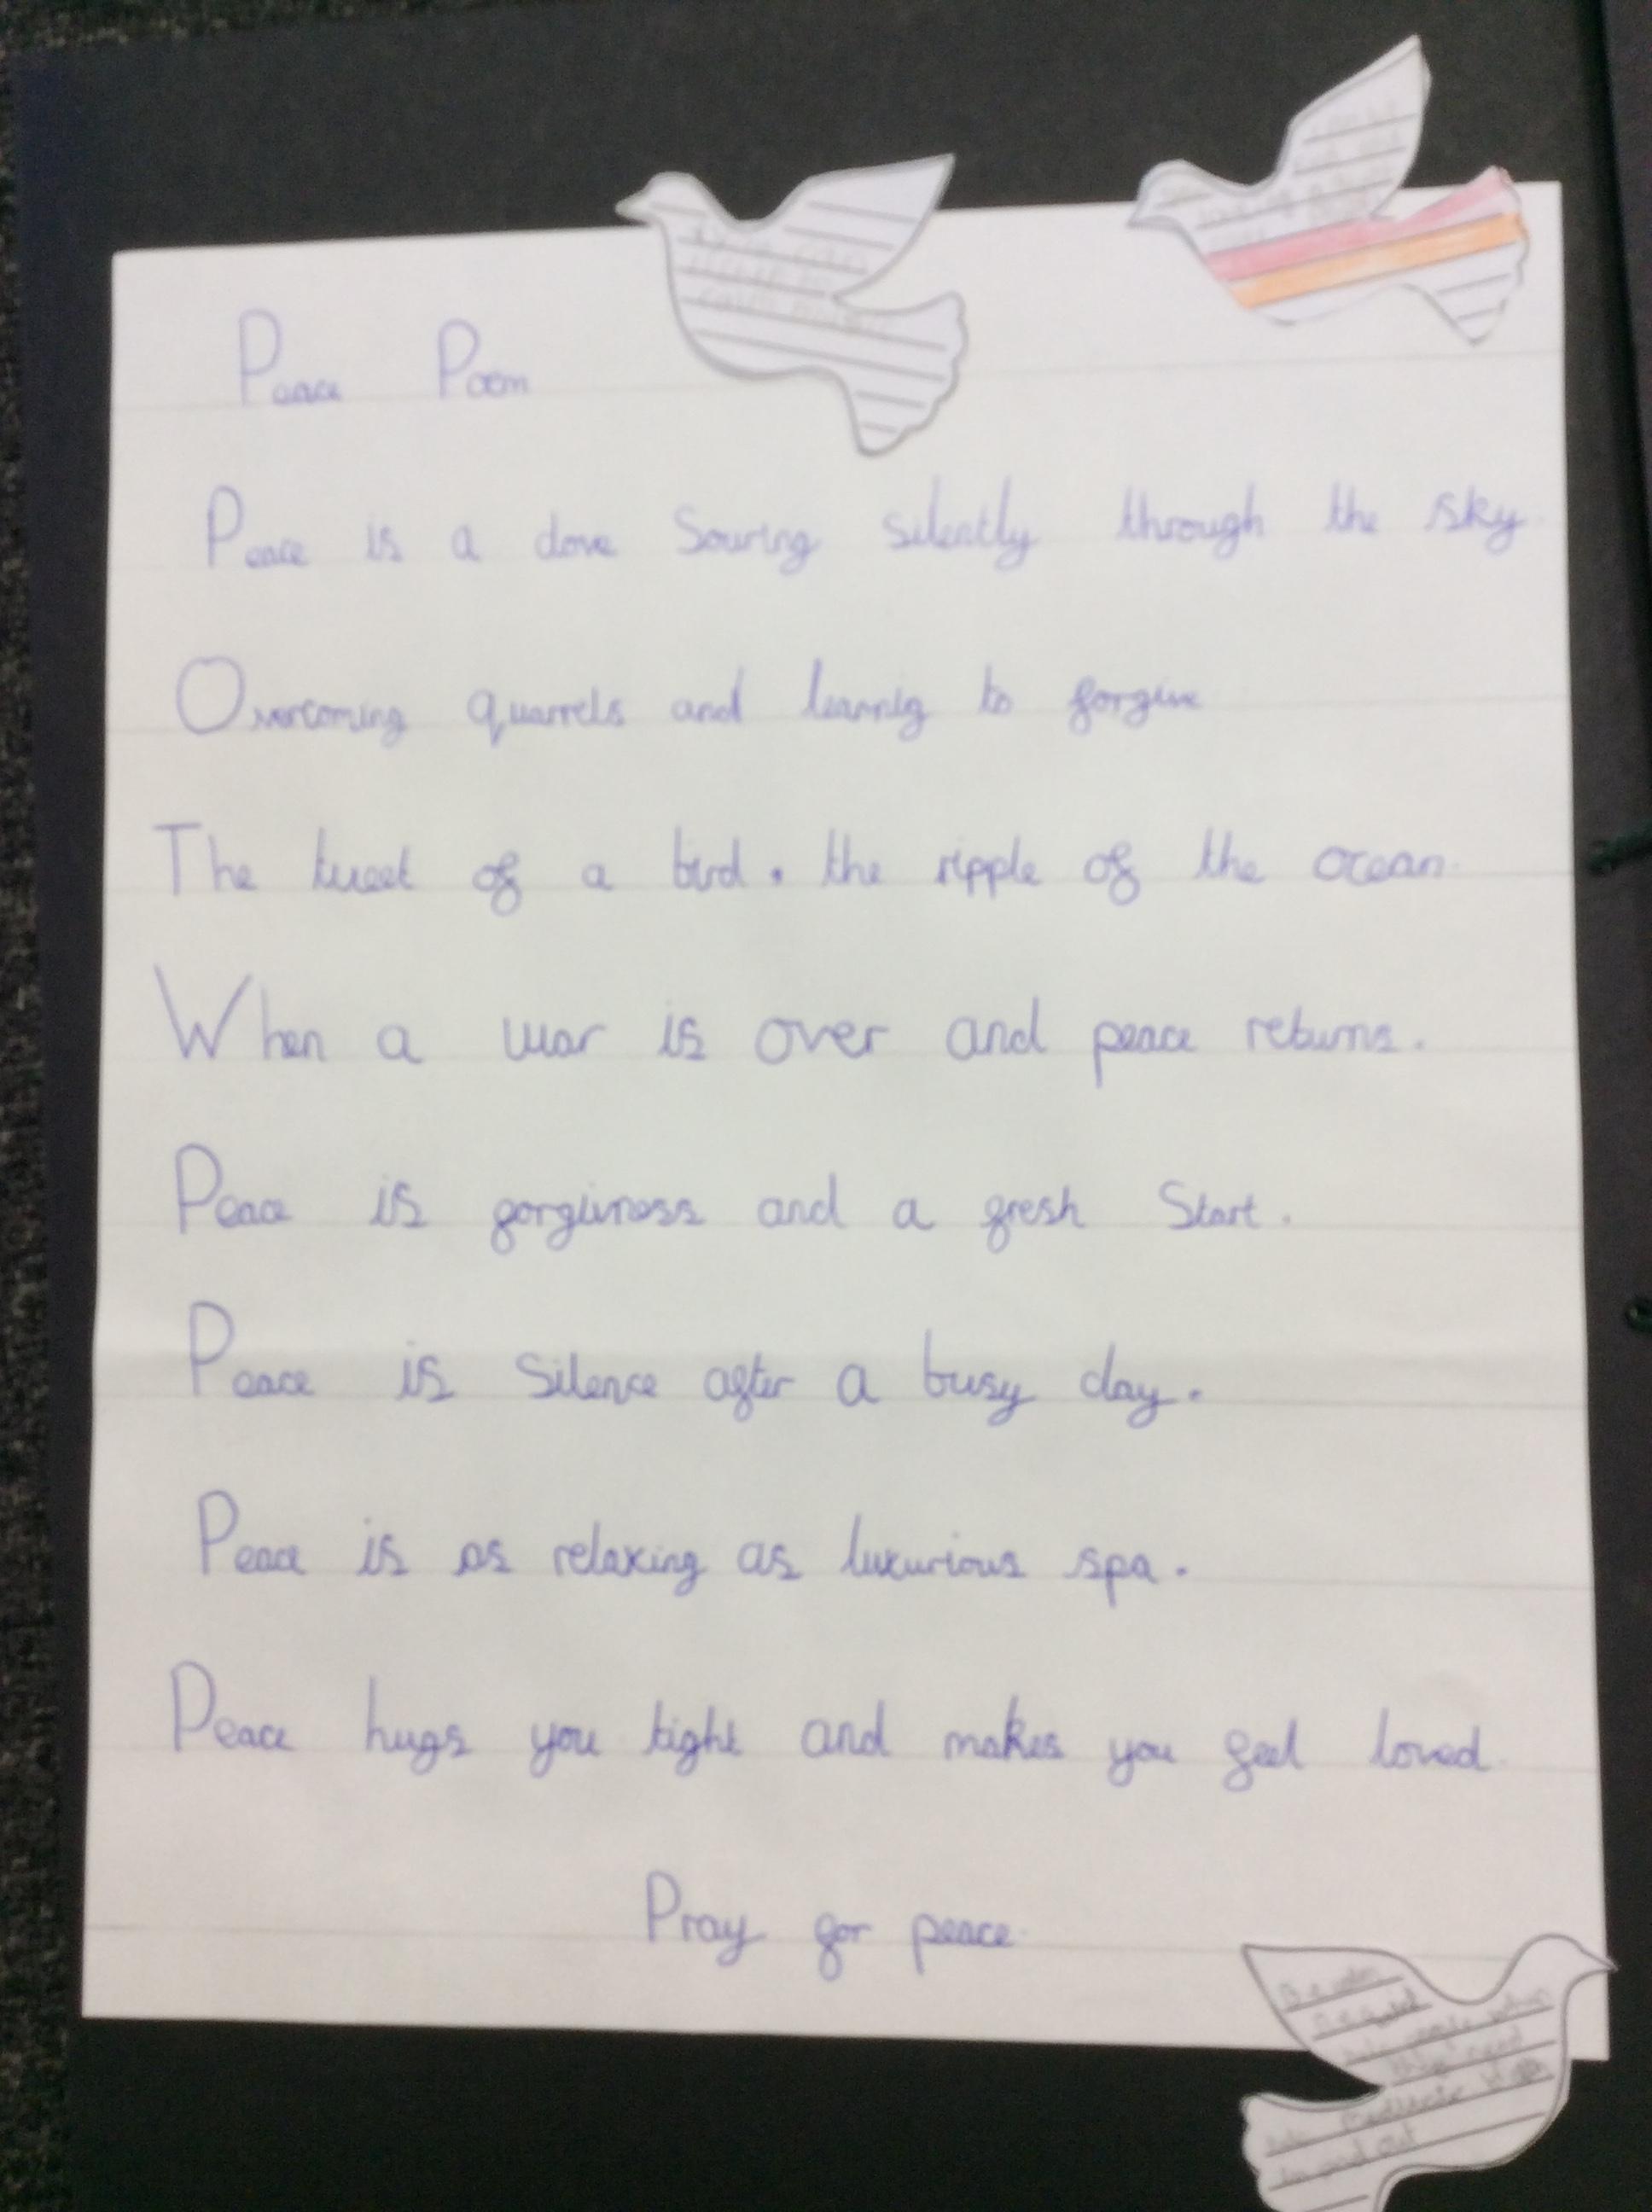 Peace Poem
Peace is a dove Souring silently through the sky.
Overcoming quarrels and learnig to forgive
The tweet of a bird. the ripple of the ocean.
When a war is over and peace returns.
Peace is forgivness and a fresh Start.
Peace is Silence after a busy day.
Peace is as relaxing as luxurious spa.
Peace hugs you tight and makes you feel loved.
Pray for peace.
they need